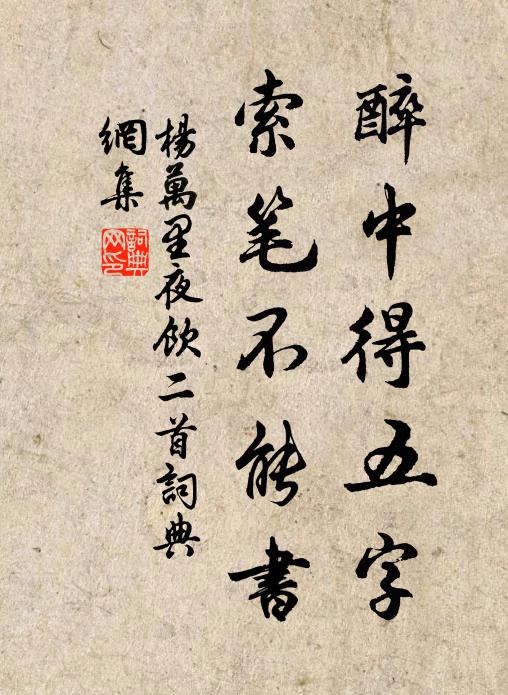 醉中得五字
索笔不能書
楊萬里夜飲二首詞典
網集
詞典
网印